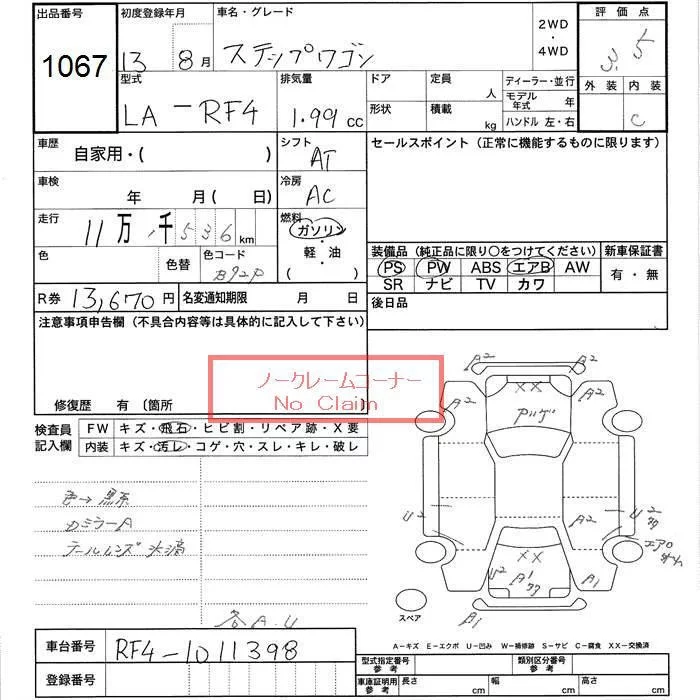 出品番号 初度登録年月 車名・グレード 2WD ・ 4WD 評価点
1067 13 8月 ステップワゴン 3.5
型式 排気量 ドア 定員 人 ディーラー・並行 外装 内装
LA-RF4 1.99cc 形状 積載 kg モデル年式 年 C
ハンドル 左・右
車歴 自家用・( ) シフト AT セールスポイント (正常に機能するものに限ります)
車検 年 月(日) 冷房 AC
走行 11万 千536km 燃料 ガソリン・軽・油 ( )
色 色替 色コード B92P
装備品 (純正品に限り○をつけてください) 新車保証書
PS PW ABS エアB AW 有・無
SR ナビ TV カワ
R券 13,670円 名変通知期限 月 日 後日品
注意事項申告欄 (不具合内容等は具体的に記入して下さい)
ノークレームコーナー
No Claim
修復歴 有 〔箇所 〕
検査員記入欄 FW キズ・飛石・ヒビ割・リペア跡・X要
内装 キズ・汚レ・コゲ・穴・スレ・キレ・破レ
色→黒系
カミラーA
テールレンズ
各A.U
A2 A2
A2 XX A2
U2 A2 U2
エアロ
XX
U2 A1 A1
A1
スペア
A−キズ E−エクボ U−凹み W−補修跡 S−サビ C−腐食 XX−交換済
車台番号 RF4-1011398
登録番号
型式指定番号 参考 類別区分番号 参考
車庫証明用 参考 長さ cm 幅 cm 高さ cm